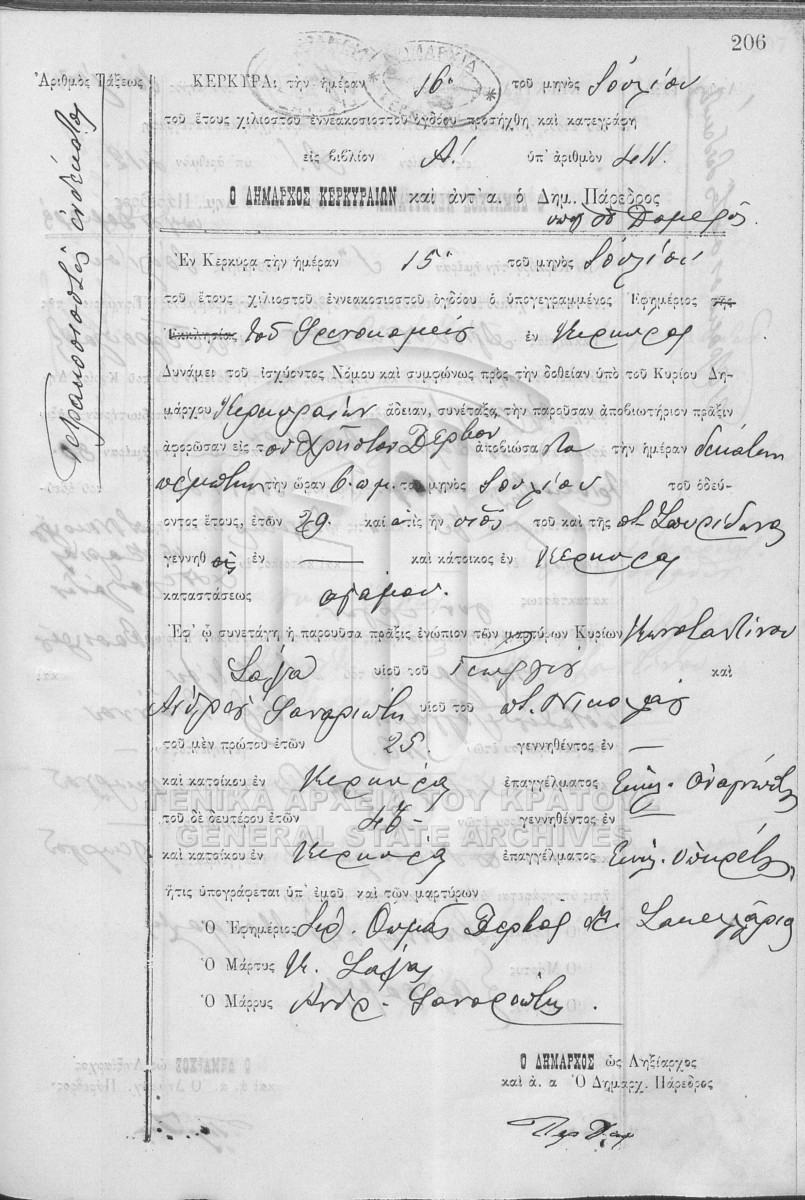 206
Ἀριθμὸς Τάξεως
τετρακοσιοστὸς ἑνδέκατος
ΚΕΡΚΥΡΑι τὴν ἡμέραν 16 τοῦ μηνὸς Ἰουλίου
τοῦ ἔτους χιλιοστοῦ ἐννεακοσιοστοῦ ὀγδόου προσήχθη καὶ κατεγράφη
εἰς βιβλίον Α! ὑπ' ἀριθμὸν
Ο ΔΗΜΑΡΧΟΣ ΚΕΡΚΥΡΑΙΩΝ καὶ ἀντ' α. ὁ Δημ. Πάρεδρος
Ἐν Κερκύρα τὴν ἡμέραν 15 τοῦ μηνὸς Ἰουλίου
τοῦ ἔτους χιλιοστοῦ ἐννεακοσιοστοῦ ὀγδόου ὁ ὑπογεγραμμένος Ἐφημέριος τῆς
Ἐκκλησίας τοῦ Φρενοκομείου ἐν Κερκύρᾳ
Δυνάμει τοῦ ἰσχύοντος Νόμου καὶ συμφώνως πρὸς τὴν δοθεῖαν ὑπὸ τοῦ Κυρίου Δη-
μάρχου Κερκυραίων ἄδειαν, συνέταξα τὴν παροῦσαν ἀποβιωτήριον πρᾶξιν
ἀφορῶσαν εἰς τὸν Χρῆστον Δερβον ἀποβιώσαντα τὴν ἡμέραν δεκάτην
πέμπτην τὴν ὥραν 6 π.μ. τοῦ μηνὸς Ἰουλίου τοῦ ὁδεύ-
οντος ἔτους, ἐτῶν 29 καὶ ἅτις ἦν υἱὸς τοῦ καὶ τῆς ποτ. Σπυρίδωνος
γεννηθεὶς ἐν — καὶ κάτοικος ἐν Κερκύρᾳ
καταστάσεως ἀγάμου.
Ἐφ' ᾧ συνετάγη ἡ παροῦσα πρᾶξις ἐνώπιον τῶν μαρτύρων Κυρίων Κωνσταντίνου
Σαψᾶ υἱοῦ τοῦ Γεωργίου καὶ
Ἀνδρέου υἱοῦ τοῦ ποτ. Νικολάου
τοῦ μὲν πρώτου ἐτῶν 25. γεννηθέντος ἐν —
καὶ κατοίκου ἐν Κερκύρᾳ ἐπαγγέλματος
ΓΕΝΙΚΑ ΑΡΧΕΙΑ ΤΟΥ ΚΡΑΤΟΥΣ
GENERAL STATE ARCHIVES
τοῦ δὲ δευτέρου ἐτῶν γεννηθέντος ἐν —
καὶ κατοίκου ἐν Κερκύρᾳ ἐπαγγέλματος
ἥτις ὑπογράφεται ὑπ' ἐμοῦ καὶ τῶν μαρτύρων
Ὁ Ἐφημέριος Ἱερ. Θωμᾶς Δερβος Σακελλάριος
Ὁ Μάρτυς Κ. Σαψᾶς
Ὁ Μάρρυς Ἀνδρ.
Ο ΔΗΜΑΡΧΟΣ ὡς Ληξίαρχος
καὶ ἀ. α Ὁ Δημαρχ. Πάρεδρος